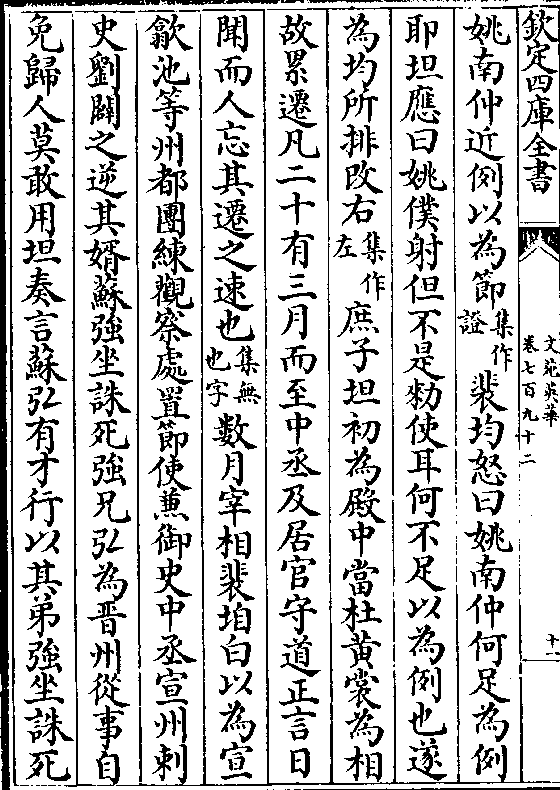 欽定四庫全書
文苑英華
卷七百九十二
十一
姚南仲近例以為節集作證裴均怒曰姚南仲何足為例
耶坦應曰姚僕射但不是勑使耳何不足以為例也遂
為均所排改右集作左庶子坦初為殿中當杜黄裳為相
故累遷凡二十有三月而至中丞及居官守道正言日
聞而人忘其遷之速也集無也字數月宰相裴垍白以為宣
歙池等州都團練觀察處置節使兼御史中丞宣州刺
史劉闢之逆其婿蘇強坐誅死強兄弘為晋州從事自
免歸人莫敢用坦奏言蘇弘有才行以其弟強坐誅死